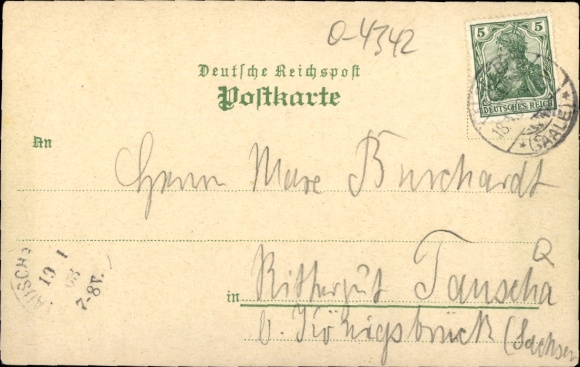 O-4342
5 5
DEUTSCHES REICH
(SAALE)
Deutsche Reichspost
Postkarte
An
Herrn Max Burchardt
TAUSCHA
19 1
03
7-8V.
Rittergut Tauscha
in
b. Königsbrück (Sachsen